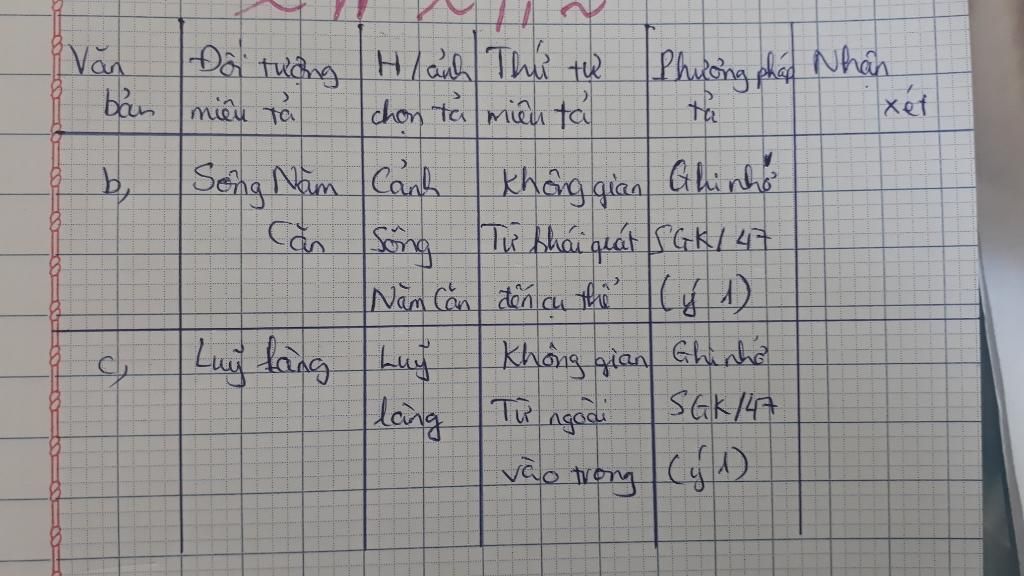 Văn bản | Đối tượng miêu tả | H/ảnh chọn tả | Thứ tự miêu tả | Phương pháp tả | Nhận xét
b, | Sông Năm Căn | Cảnh Sông Năm Căn | Không gian Từ khái quát đến cụ thể | Ghi nhớ SGK/47 (ý 1)
c, | Luỹ làng | Luỹ làng | Không gian Từ ngoài vào trong | Ghi nhớ SGK/47 (ý 1)